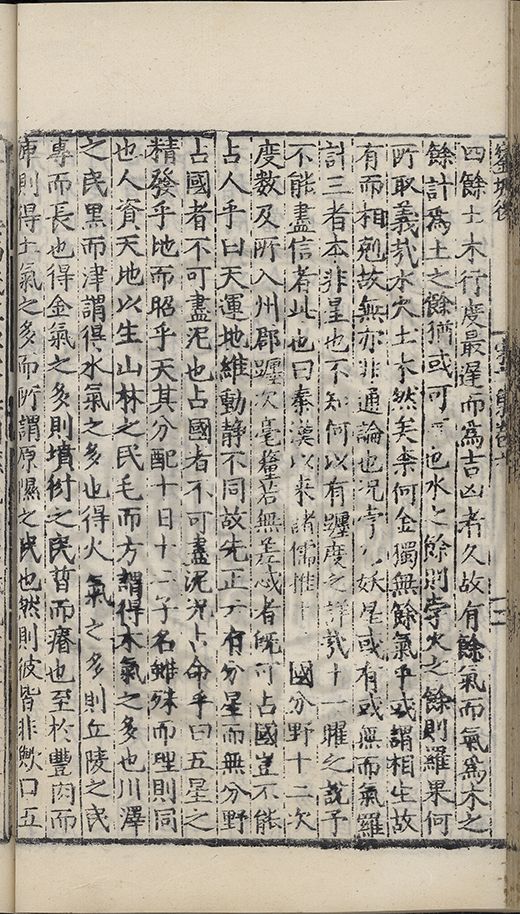 鑾坡後
四餘土木行度最遲而爲吉凶者久故有餘氣而氣爲木之
餘計爲土之餘猶或可也水之餘則孛火之餘則羅果何
所取義哉水火土木然矣柰何金獨無餘氣乎或謂相生故
有而相剋故無亦非通論也况孛乃妖星或有或無而氣羅
計三者本非星也不知何以有躔度之詳哉十一曜之說予
不能盡信者此也曰秦漢以來諸儒推十國分野十二次
度數及所入州郡躔次毫釐若無差忒者旣可占國豈不能
占人乎曰天運地維動靜不同故先正云有分星而無分野
占國者不可盡泥也占國者不可盡泥况占命乎曰五星之
精發乎地而昭乎天其分配十日十二子名雖殊而理則同
也人資天地以生山林之民毛而方謂得木氣之多也川澤
之民黑而津謂得水氣之多也得火氣之多則丘陵之民
專而長也得金氣之多則墳衍之民晳而瘠也至於豐肉而
庳則得土氣之多而所謂原隰之民也然則彼皆非歟曰五